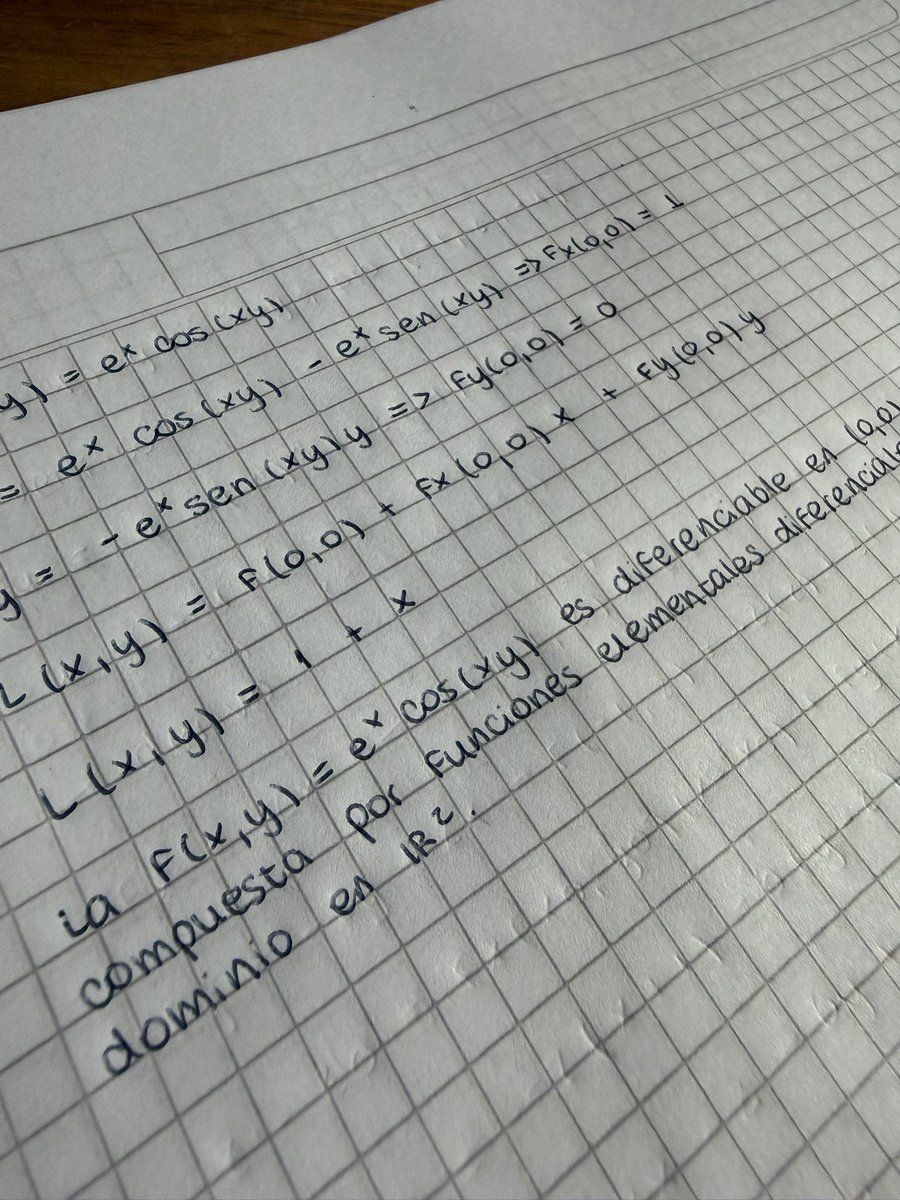 y) = eˣ cos(xy)
= eˣ cos(xy) - eˣ sen(xy) => Fx(0,0) = 1
y = - eˣ sen(xy) y => Fy(0,0) = 0
L(x,y) = F(0,0) + Fx(0,0) x + Fy(0,0) y
L(x,y) = 1 + x
La F(x,y) = eˣ cos(xy) es diferenciable en (0,0)
compuesta por funciones elementales
dominio en IR².